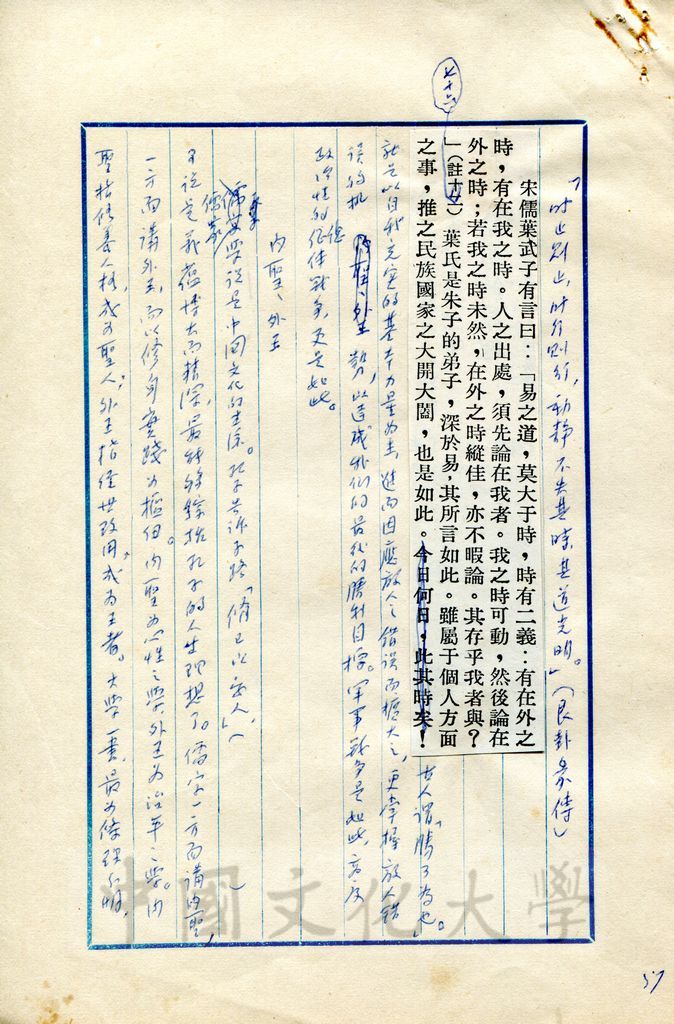 七十六
「時止則止，時行則行，動靜不失其時，其道光明。」（艮卦彖傳）
宋儒葉武子有言曰：「易之道，莫大于時，時有二義：有在外之
時，有在我之時。人之出處，須先論在我者。我之時可動，然後論在
外之時；若我之時未然，在外之時縱佳，亦不暇論。其存乎我者與？
」（註十七）葉氏是朱子的弟子，深於易，其所言如此。雖屬于個人方面
之事，推之民族國家之大開大闔，也是如此。今日何日，此其時矣！古人謂「勝可為也」。
就是以自我充实的基本力量为主，進而因應敌人之錯误而擴大之，更掌握敌人錯
误的机勢，以造成我们的最後的勝利目标。军事戰争是如此，高度
政治性的总体戰争，更是如此。
內聖、外王
儒家學说是中国文化的主流。孔子告诉子路「修己以安人」，（ ）
可说是義蕴博大而精深，最能夠綜括孔子的人生理想了。儒家一方面講內聖，
一方面講外王，而以修身實踐为樞纽。內聖为心性之學，外王为治平之學。內
聖指修養人格，成为聖人；外王指经世致用，成为王者。大學一書，最为條理分明，
中國文化大學
57